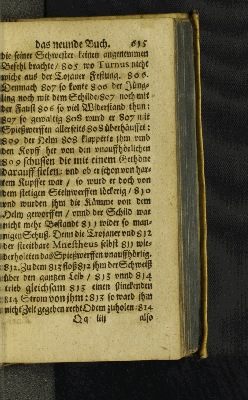 das neunde Buch. 615
die seiner Schwester keinen angenemmen
Befehl brachte / 805 wo Turnus nicht
wiche aus der Trojaner Festung. 806.
Demnach 807 so konte 806 der Jüng-
ling noch mit dem Schilde 807 noch mit
der Faust 806 so viel Widerstand thun:
807 so gewaltig 808 wurd er 807 mit
Spießwerffen allerseits 808 überhäuffet:
809 der Helm 808 klapperte ihm umb
den Kopff her von den unauffhörlichen
809 schussen die mit einem Gethöne
darauff fielen: und ob er schon von har-
tem Kupffer war / so wurd er doch von
dem stetigen Steinwerffen löcherig / 810
und wurden ihm die Kämme von dem
Helm geworffen / unnd der Schild war
nicht mehr Bestandt 811 wider so man-
nigen Schuß. Denn die Trojaner und 812
der streitbare Mnestheus selbst 811 wie-
derholeten das Spießwerffen unauffhörlig.
812. Zu dem 813 floß 812 ihm der Schweiß
über den gantzen Leib / 813 unnd 814
trieb gleichsam 813 einen stinckenden
814 Strom von ihm: 813 so ward ihm
nicht Zeit gegeben recht Odem zuholen: 814
Qq iiij also